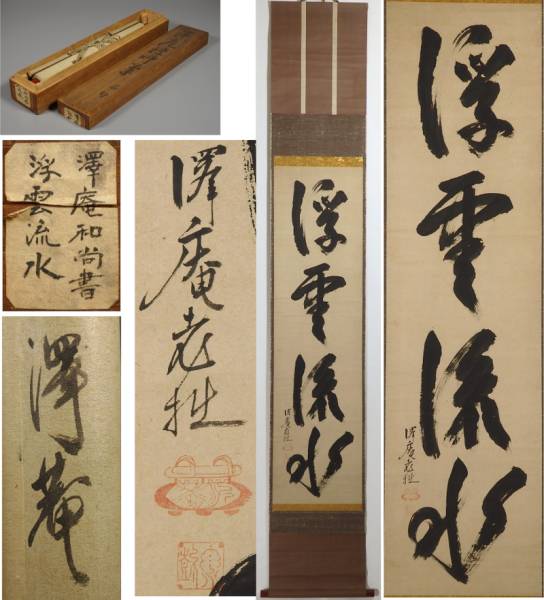 澤庵和尚書
浮雲流水
澤菴
澤庵老拙
浮雲流水
澤庵老拙
浮雲流水
澤庵老拙